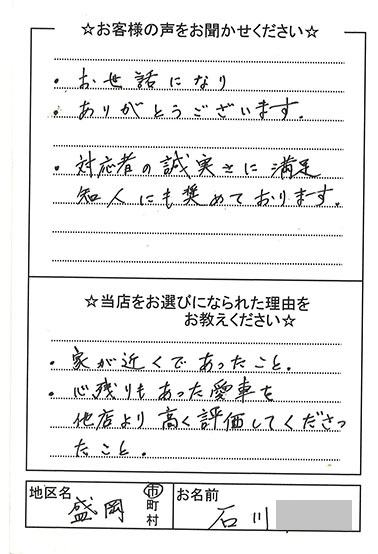 ☆お客様の声をお聞かせください☆
・お世話になり
・ありがとうございます。
・対応者の誠実さに満足
知人にも奨めております。
☆当店をお選びになられた理由を
お教えください☆
・家が近くであったこと。
・心残りもあった愛車を
他店より高く評価してくださっ
たこと。
地区名
盛岡
市
町
村
お名前
石川